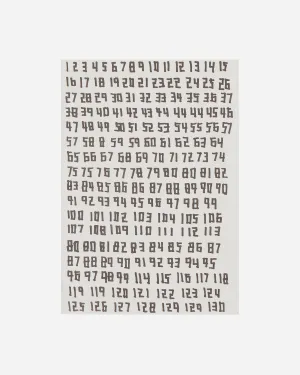 1 2 3 4 5 6 7 8 9 10 11 12 13 14 15
16 17 18 19 20 21 22 23 24 25 26
27 28 29 30 31 32 33 34 35 36 37
38 39 40 41 42 43 44 45 46
47 48 49 50 51 52 53 54 55 56 57
57 58 59 59 60 61 62 63 64
65 66 67 68 69 70 71 72 73 74
75 75 76 77 78 79 80 81 82
83 84 85 86 87 88 89 90
91 92 93 94 95 96 97 98 99
100 101 102 103 104 105 106
107 108 109 110 111 112 113
80 81 82 83 84 85 86 87
88 89 90 91 92 93 94 95
96 97 98 99 114 115 116 117 118
119 119 120 121 122 123 124
125 126 127 128 129 129 130